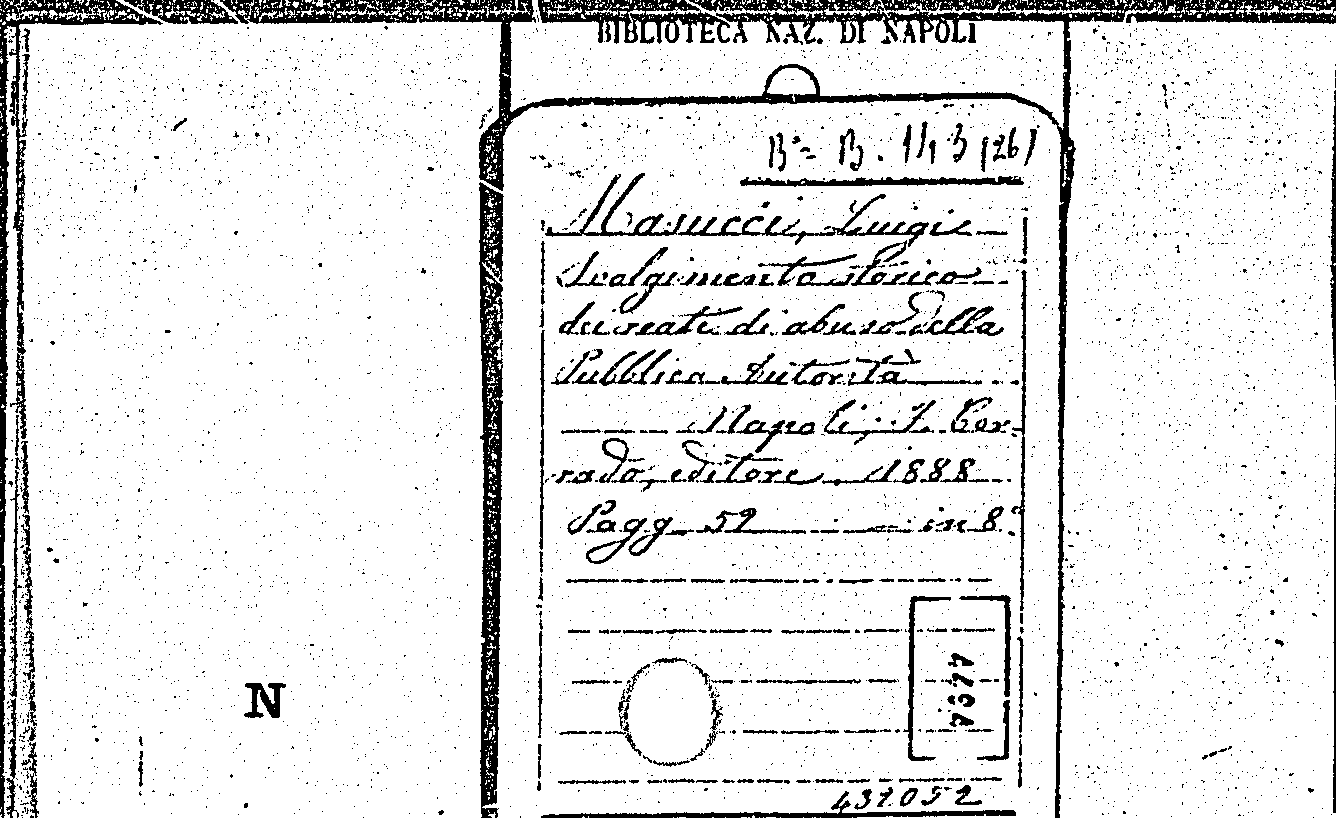 BIBLIOTECA NAZ. DI NAPOLI
Bª= B. 1113 (26)
Masucci, Luigi
Svolgimento storico
dei reati di abuso della
Pubblica Autorità
Napoli; T. Cor-
rado, editore. 1888
Pagg 59 — in 8º
N
437052